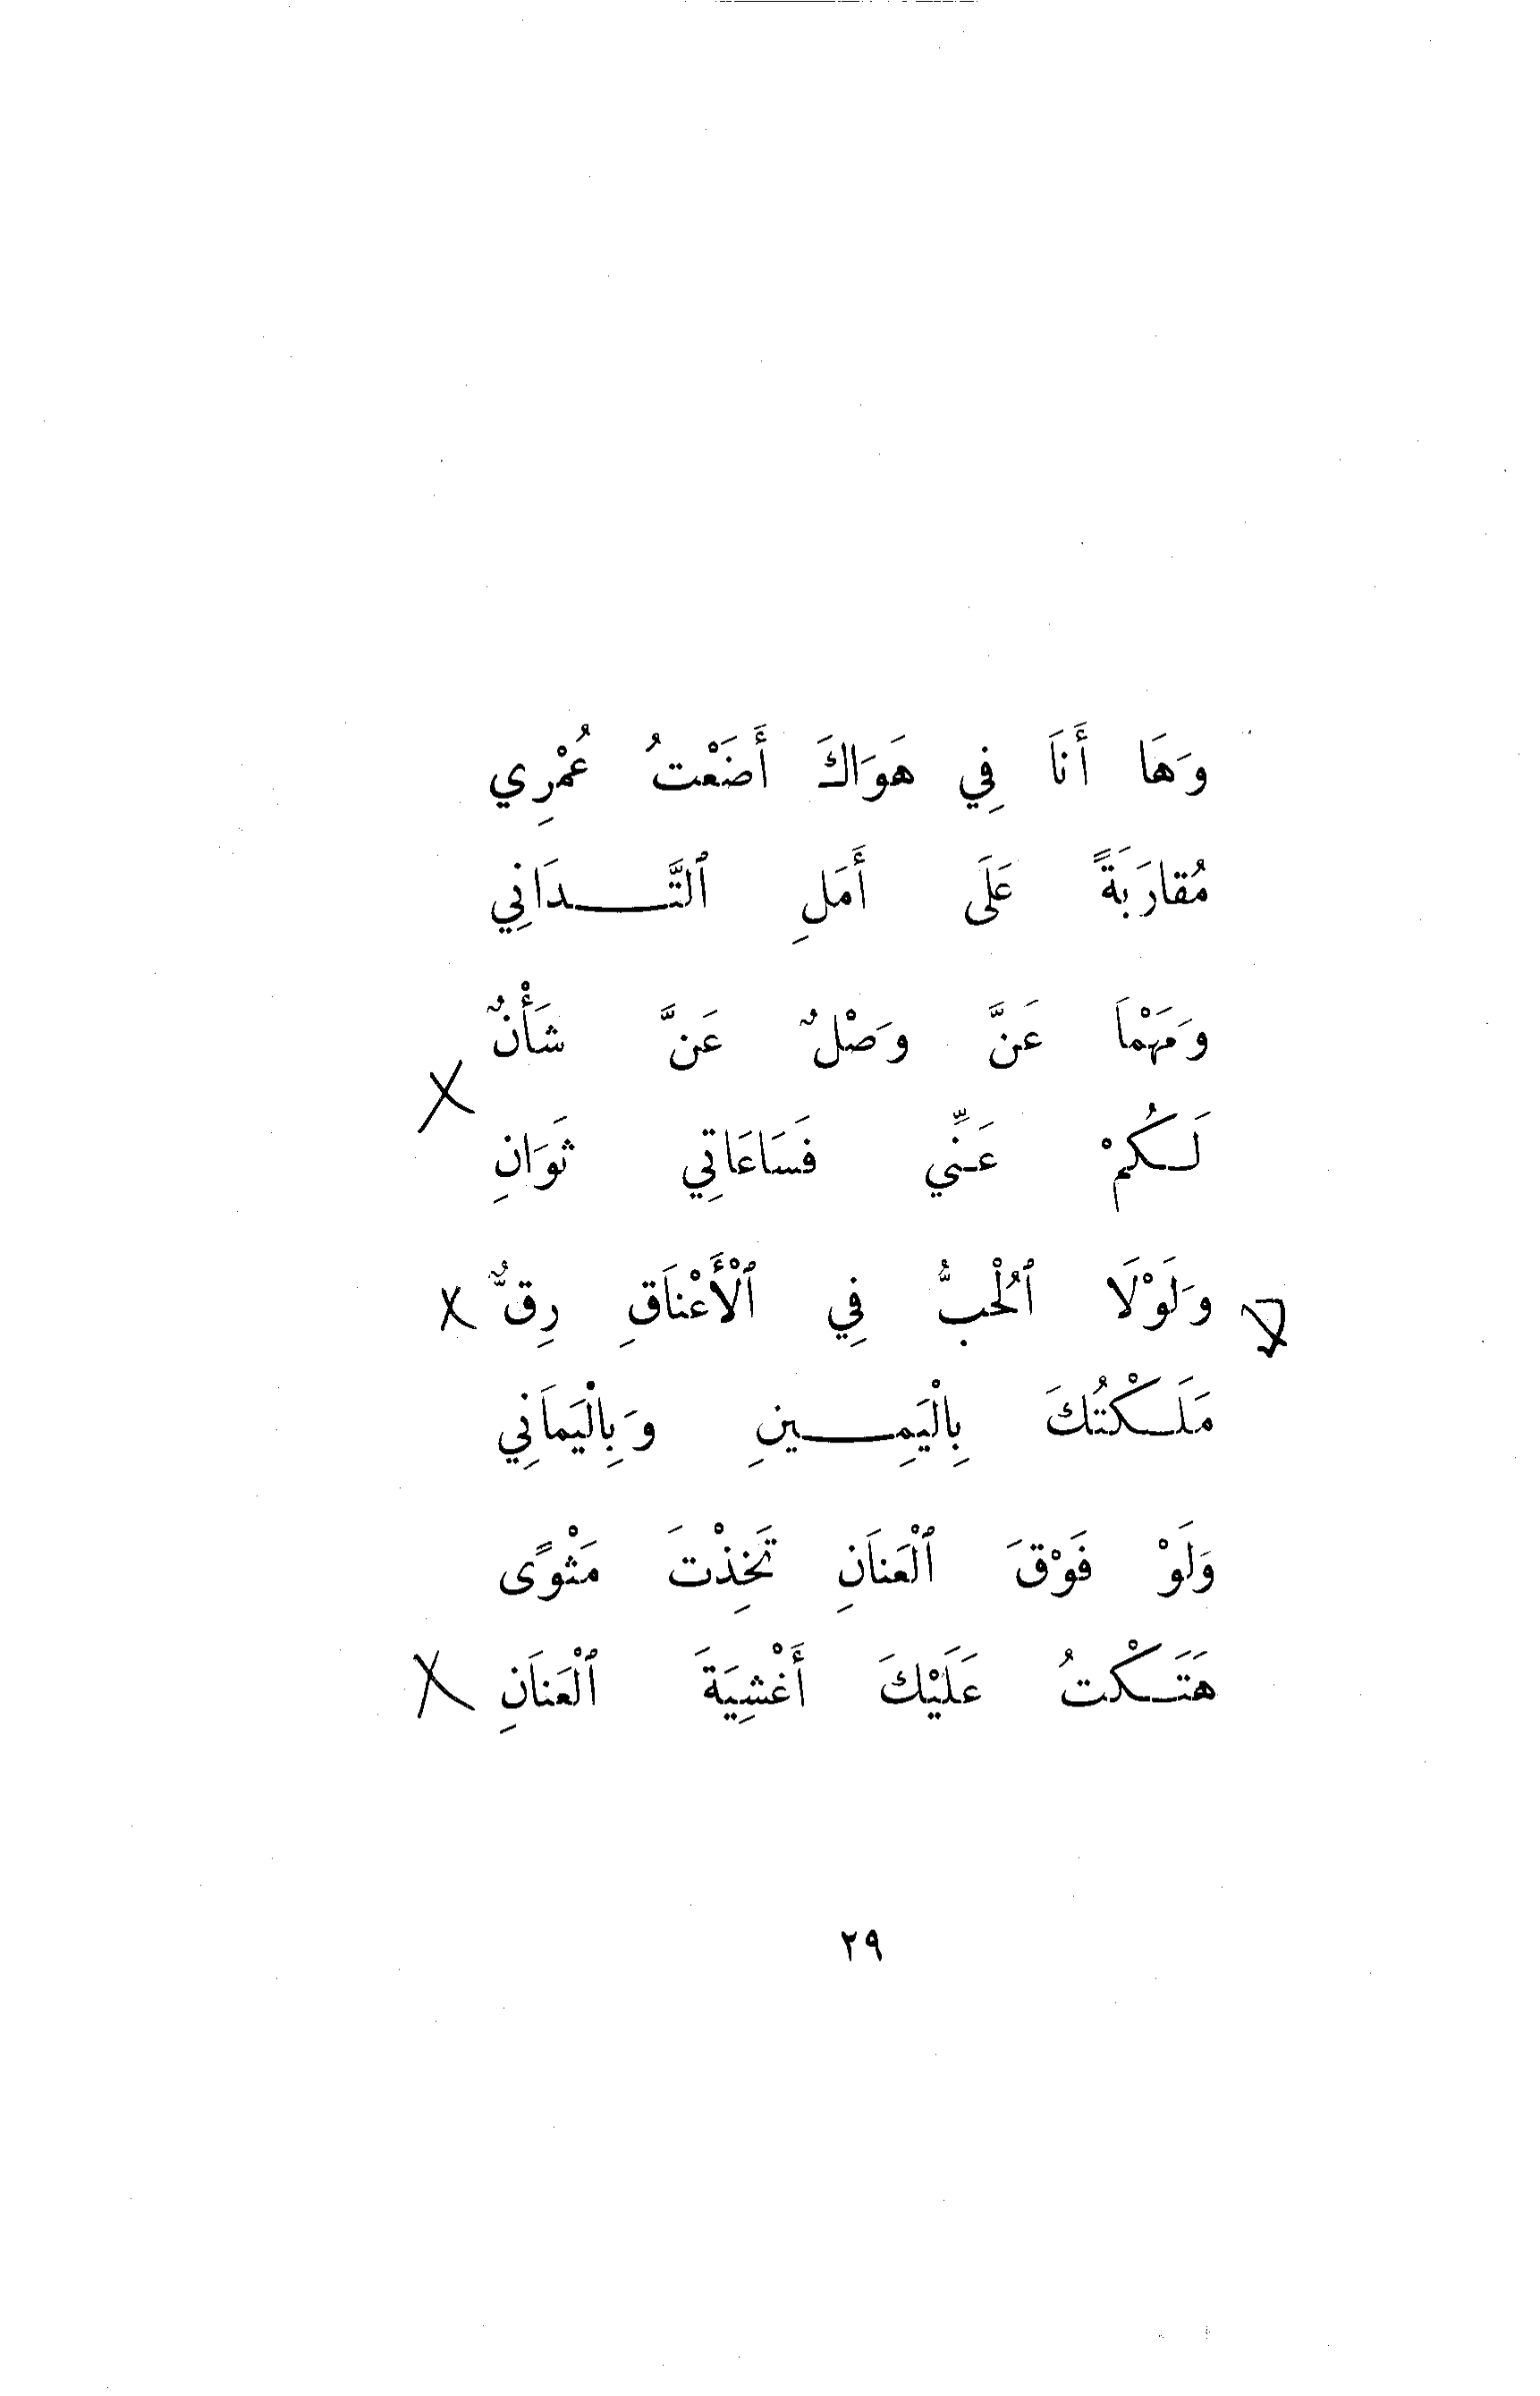 وَهَا أَنَا فِي هَوَاكَ أَضَعْتُ عُمْرِي
مُقَارَبَةً عَلَى أَمَلِ ٱلتَّـــدَانِي
وَمَهْمَا عَنَّ وَصْلٌ عَنَّ شَأْنٌ
لَـكُمْ عَنِّي فَسَاعَاتِي ثَوَانِ
وَلَوْلَا ٱلْحُبُّ فِي ٱلْأَعْنَاقِ رِقٌّ
مَلَـكْتُكَ بِالْيَمِـــينِ وَبِالْيَمَانِي
وَلَوْ فَوْقَ ٱلْعَنَانِ تَخِذْتَ مَثْوًى
هَتَـكْتُ عَلَيْكَ أَغْشِيَةَ ٱلْعَنَانِ
٢٩